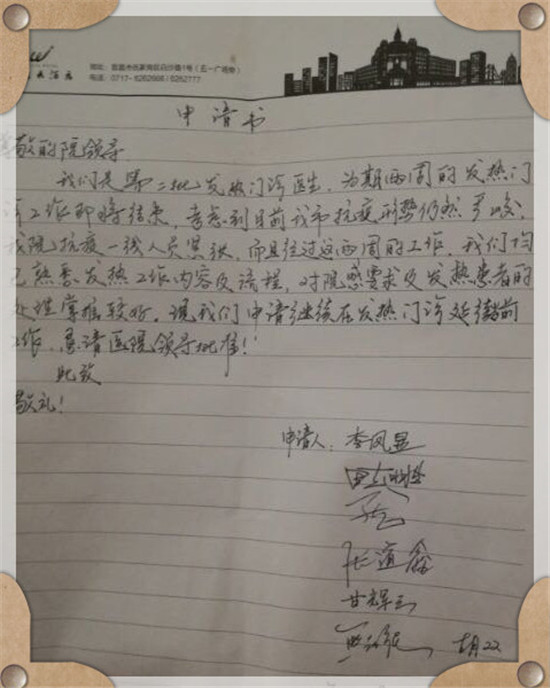 地址：宜昌市伍家岗区白沙路1号（五一广场旁）
酒店
电话：0717-6262666 / 6252777
申请书
敬的院领导
我们是第二批发热门诊医生，为期两周的发热门
诊工作即将结束，考虑到目前我市抗疫形势仍然严峻，
我院抗疫一线人员紧张，而且经过这两周的工作，我们均
已熟悉发热工作内容及流程，对院感要求及发热患者的
处理掌握较好，现我们申请继续在发热门诊延续前
工作，恳请医院领导批准！
此致
敬礼！
申请人：李凤显
张道鑫
甘辉立
22